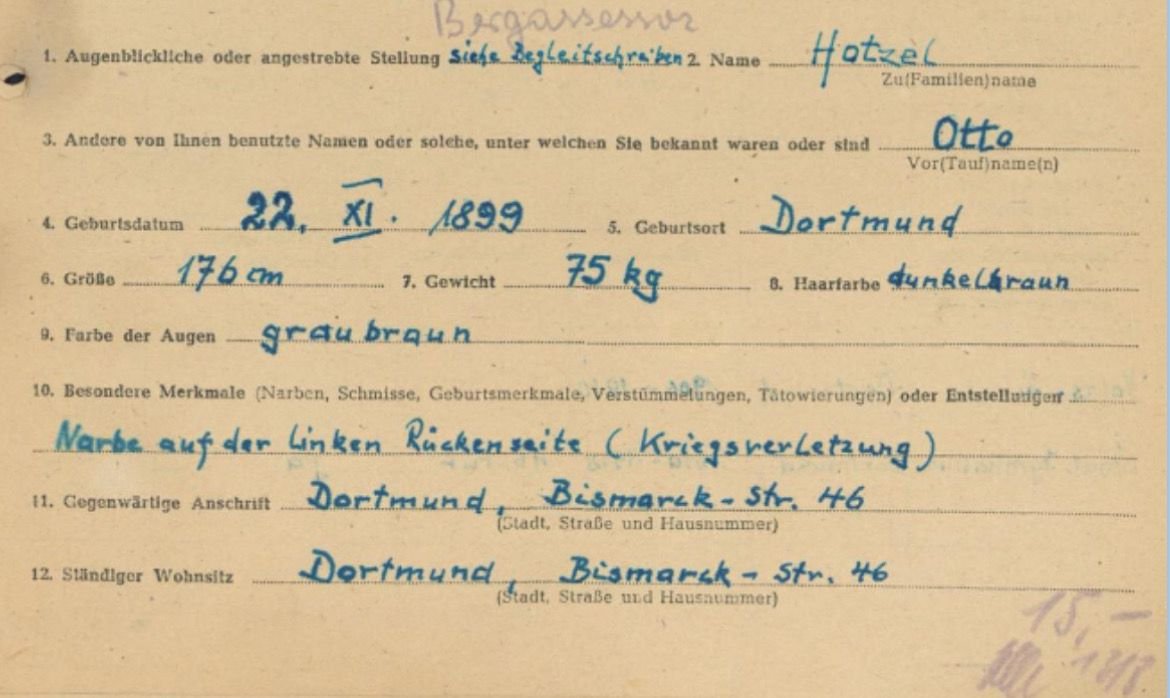 Bergassessor
1. Augenblickliche oder angestrebte Stellung siehe Begleitschreiben 2. Name Hatzel
Zu(Familien)name
3. Andere von Ihnen benutzte Namen oder solche, unter welchen Sie bekannt waren oder sind Otto
Vor(Tauf)name(n)
4. Geburtsdatum 22. XI. 1899 5. Geburtsort Dortmund
6. Größe 176 cm 7. Gewicht 75 kg 8. Haarfarbe dunkelbraun
9. Farbe der Augen graubraun
10. Besondere Merkmale (Narben, Schmisse, Geburtsmerkmale, Verstümmelungen, Tätowierungen) oder Entstellungen
Narbe auf der linken Rückenseite (Kriegsverletzung)
11. Gegenwärtige Anschrift Dortmund, Bismarck-Str. 46
(Stadt, Straße und Hausnummer)
12. Ständiger Wohnsitz Dortmund, Bismarck-Str. 46
(Stadt, Straße und Hausnummer)
15,-